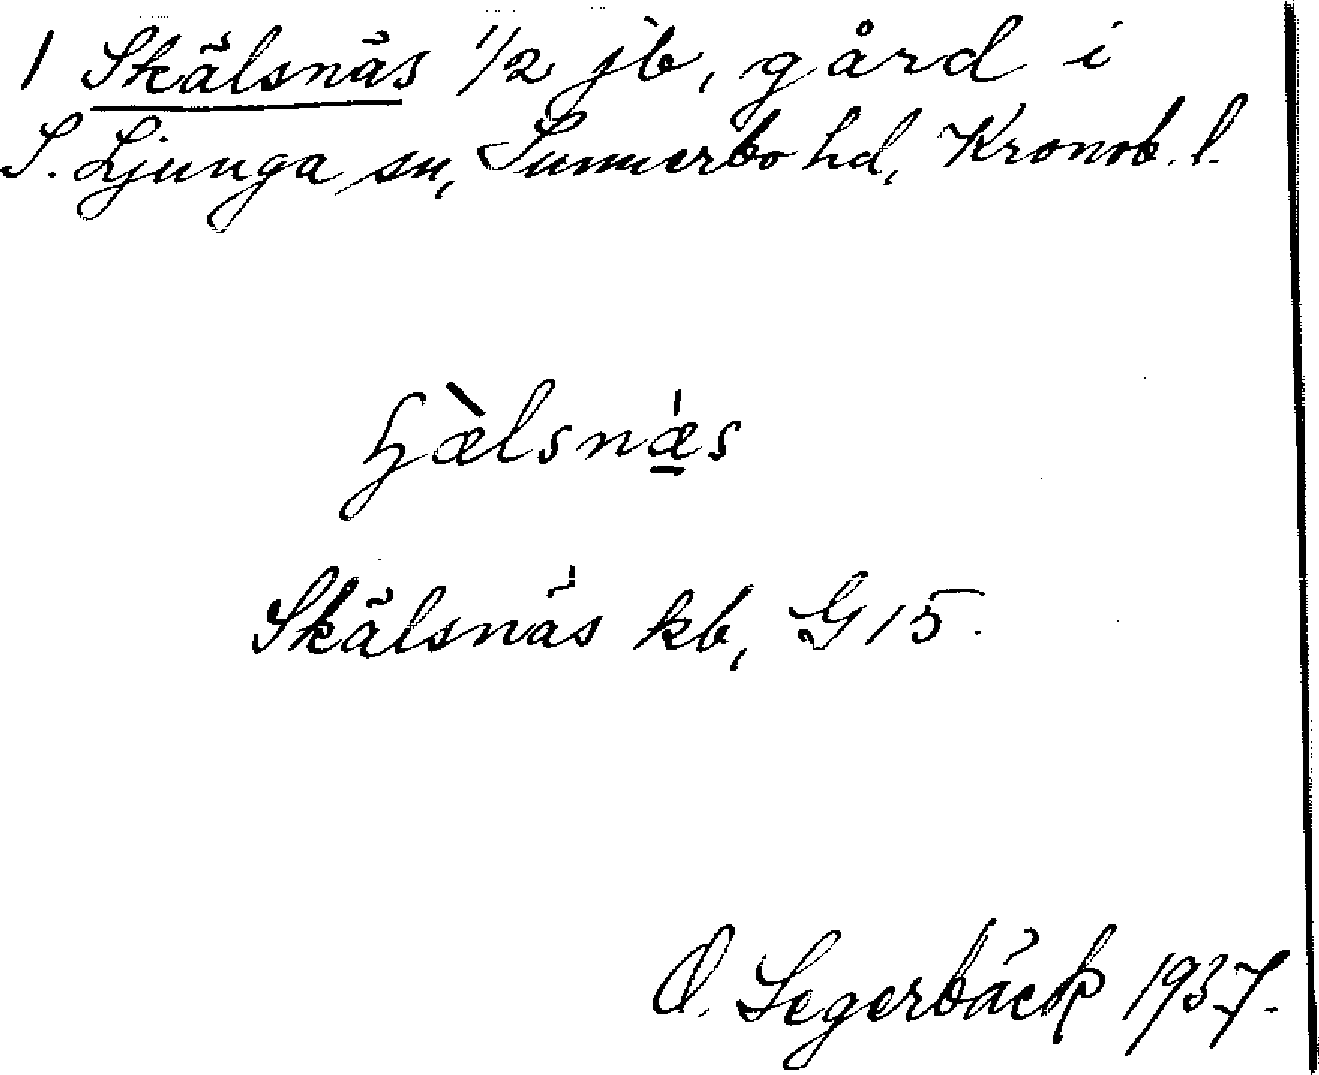 1 Skälsnäs 1/2 jb, gård i
S. Ljunga sn, Sunnerbo hd, Kronob. l.
ɧæ̀lsnǽ̱s
Skälsnäs kb, G 15.
O. Segerbäck 1937.